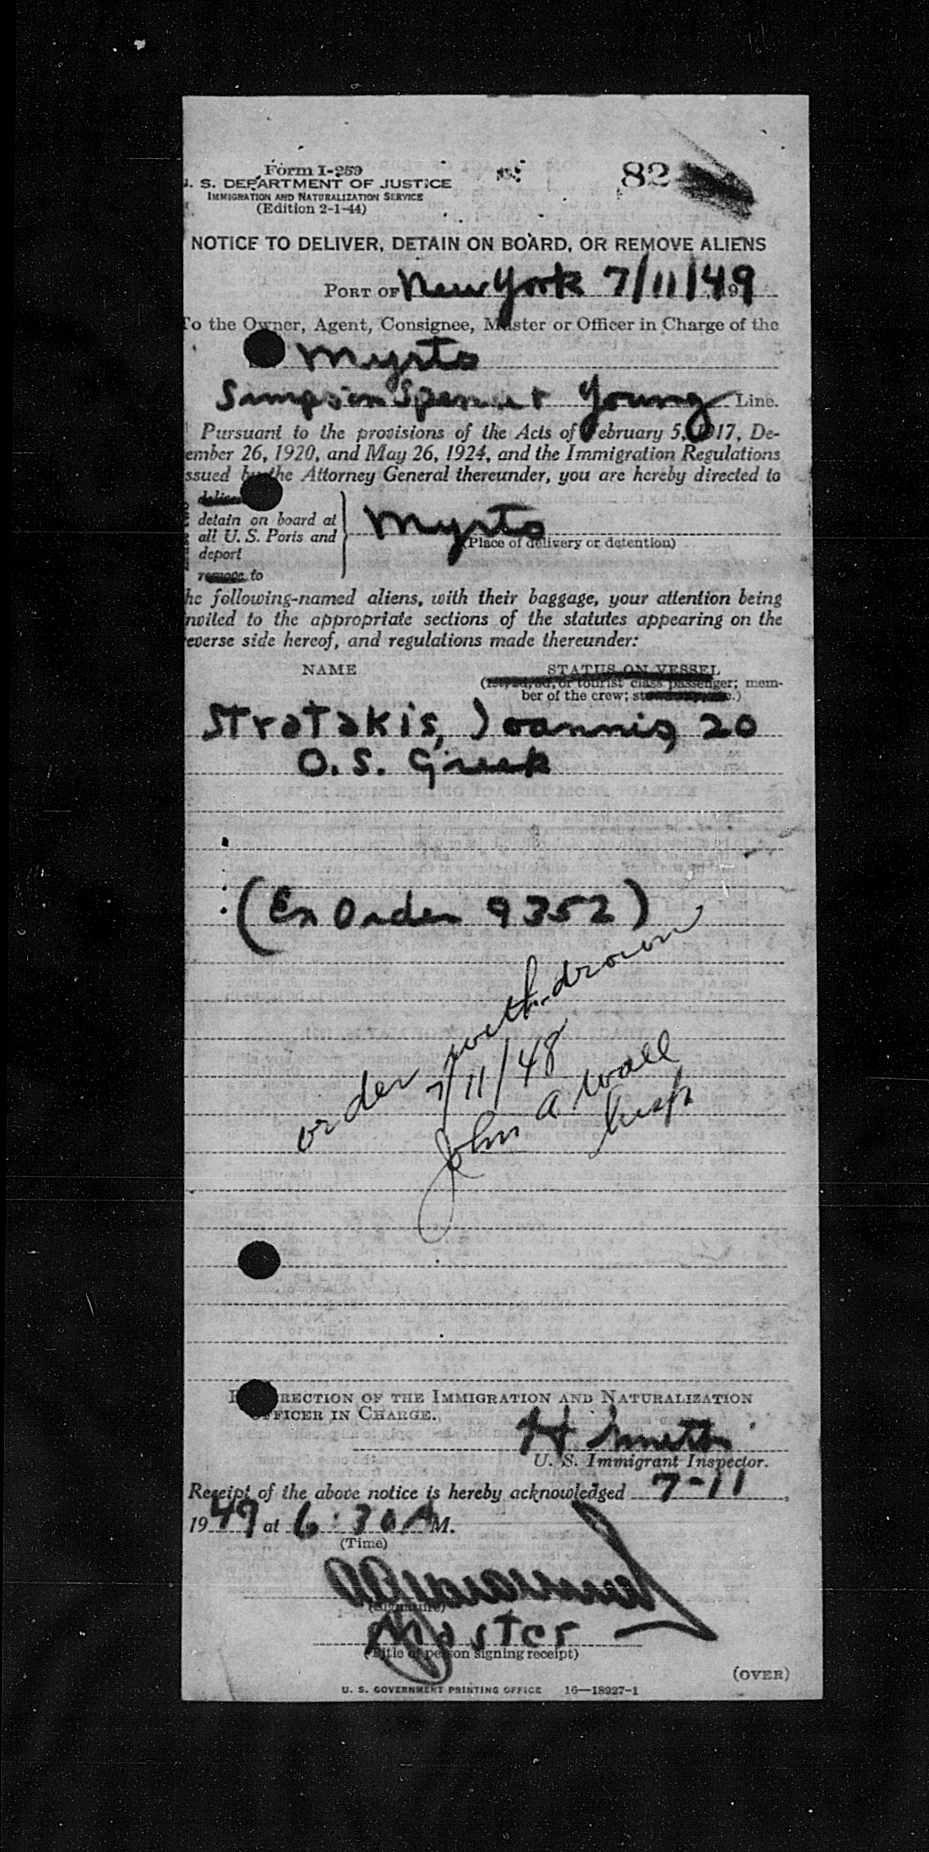 Form I-259
82
. S. DEPARTMENT OF JUSTICE
IMMIGRATION AND NATURALIZATION SERVICE
(Edition 2-1-44)
NOTICE TO DELIVER, DETAIN ON BOARD, OR REMOVE ALIENS
PORT OF New York 7/11/49
To the Owner, Agent, Consignee, Master or Officer in Charge of the
Myrto
Simpson Spence + Young Line.
Pursuant to the provisions of the Acts of February 5, 1917, De-
ember 26, 1920, and May 26, 1924, and the Immigration Regulations
ssued by the Attorney General thereunder, you are hereby directed to
deliver
detain on board at
all U. S. Ports and
deport
remove to
Myrto
(Place of delivery or detention)
he following-named aliens, with their baggage, your attention being
nvited to the appropriate sections of the statutes appearing on the
everse side hereof, and regulations made thereunder:
NAME
STATUS ON VESSEL
(1st, 2d, 3d, or tourist class passenger; mem-
ber of the crew;
Stratakis, Joannis, 20
O.S. Greek
(Ex Order 9352)
order withdrawn
7/11/48
John A Wall
Insp
DIRECTION OF THE IMMIGRATION AND NATURALIZATION
OFFICER IN CHARGE.
H
U. S. Immigrant Inspector.
Receipt of the above notice is hereby acknowledged 7-11,
1949 at 6:30 A M.
(Time)
(Signature)
Master
(Title of person signing receipt)
(OVER)
U. S. GOVERNMENT PRINTING OFFICE 16—18927-1